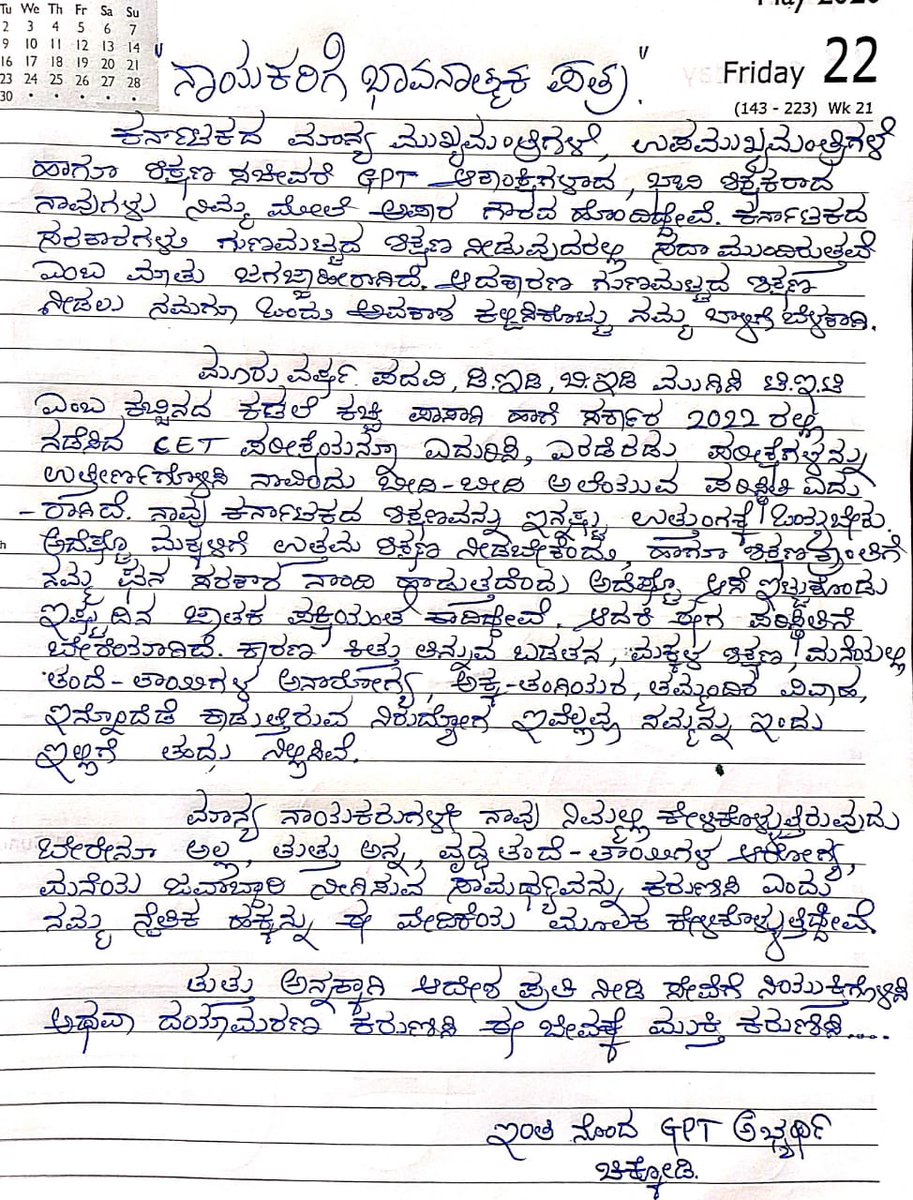 May 2020
Tu We Th Fr Sa Su
2 3 4 5 6 7
9 10 11 12 13 14
16 17 18 19 20 21
23 24 25 26 27 28
30 • • • • •
Friday 22
(143 - 223) Wk 21
"ನಾಯಕರಿಗೆ ಭಾವನಾತ್ಮಕ ಪತ್ರ."
ಕರ್ನಾಟಕದ ಮಾನ್ಯ ಮುಖ್ಯಮಂತ್ರಿಗಳೆ, ಉಪಮುಖ್ಯಮಂತ್ರಿಗಳೆ
ಹಾಗೂ ಶಿಕ್ಷಣ ಸಚೀವರೆ GPT ಆಕಾಂಕ್ಷಿಗಳಾದ, ಭಾವಿ ಶಿಕ್ಷಕರಾದ
ನಾವುಗಳು ನಿಮ್ಮ ಮೇಲೆ ಅಪಾರ ಗೌರವ ಹೊಂದಿದ್ದೇವೆ. ಕರ್ನಾಟಕದ
ಸರಕಾರಗಳು ಗುಣಮಟ್ಟದ ಶಿಕ್ಷಣ ನೀಡುವುದರಲ್ಲಿ ಸದಾ ಮುಂದಿರುತ್ತವೆ
ಎಂಬ ಮಾತು ಜಗಜ್ಜಾಹೀರಾಗಿದೆ. ಆದಕಾರಣ ಗುಣಮಟ್ಟದ ಶಿಕ್ಷಣ
ನೀಡಲು ನಮಗೂ ಒಂದು ಅವಕಾಶ ಕಲ್ಪಿಸಿಕೊಟ್ಟು ನಮ್ಮ ಬಾಳಿಗೆ ಬೆಳಕಾಗಿ.
ಮೂರು ವರ್ಷ ಪದವಿ, ಡಿ.ಇಡಿ, ಬಿ.ಇಡಿ ಮುಗಿಸಿ ಟಿ.ಇ.ಟಿ
ಎಂಬ ಕಬ್ಬಿನದ ಕಡಲೆ ಕಚ್ಚಿ ಪಾಸಾಗಿ ಹಾಗೆ ಸರ್ಕಾರ 2022 ರಲ್ಲಿ
ನಡೆಸಿದ CET ಪರೀಕ್ಷೆಯನೂ ಎದುರಿಸಿ, ಎರಡೆರಡು ಪರೀಕ್ಷೆಗಳನ್ನು
ಉತ್ತೀರ್ಣಗೊಳಿಸಿ ನಾವಿಂದು ಬೀದಿ-ಬೀದಿ ಅಲೆಯುವ ಪರಿಸ್ಥಿತಿ ಎದು
-ರಾಗಿದೆ. ನಾವು ಕರ್ನಾಟಕದ ಶಿಕ್ಷಣವನ್ನು ಇನ್ನಷ್ಟು ಉತ್ತುಂಗಕ್ಕೆ ಒಯ್ಯಬೇಕು.
ಅದೆಷ್ಟೊ ಮಕ್ಕಳಿಗೆ ಉತ್ತಮ ಶಿಕ್ಷಣ ನೀಡಬೇಕೆಂದು, ಹಾಗೂ ಶಿಕ್ಷಣಕ್ರಾಂತಿಗೆ
ನಮ್ಮ ಘನ ಸರಕಾರ ನಾಂದಿ ಹಾಡುತ್ತದೆಂದು ಅದೆಷ್ಟೊ ಆಸೆ ಇಟ್ಟುಕೊಂಡು
ಇಷ್ಟು ದಿನ ಜಾತಕ ಪಕ್ಷಿಯಂತೆ ಕಾದಿದ್ದೇವೆ. ಆದರೆ ಈಗ ಪರಿಸ್ಥಿತಿನೆ
ಬೇರೆಯಾಗಿದೆ. ಕಾರಣ ಕಿತ್ತು ತಿನ್ನುವ ಬಡತನ, ಮಕ್ಕಳ ಶಿಕ್ಷಣ, ಮನೆಯಲ್ಲಿ
ತಂದೆ-ತಾಯಿಗಳ ಅನಾರೋಗ್ಯ, ಅಕ್ಕ-ತಂಗಿಯರ, ತಮ್ಮಂದಿರ ವಿವಾಹ,
ಇನ್ನೊಂದೆಡೆ ಕಾಡುತ್ತಿರುವ ನಿರುದ್ಯೋಗ ಇವೆಲ್ಲವು ನಮ್ಮನ್ನು ಇಂದು
ಇಲ್ಲಿಗೆ ತಂದು ನಿಲ್ಲಿಸಿವೆ.
ಮಾನ್ಯ ನಾಯಕರುಗಳೇ ನಾವು ನಿಮ್ಮಲ್ಲಿ ಕೇಳಿಕೊಳ್ಳುತ್ತಿರುವುದು
ಬೇರೇನೂ ಅಲ್ಲ, ತುತ್ತು ಅನ್ನ, ವೃದ್ಧ ತಂದೆ-ತಾಯಿಗಳ ಆರೋಗ್ಯ,
ಮನೆಯ ಜವಾಬ್ದಾರಿ ನೀಗಿಸುವ ಸಾಮರ್ಥ್ಯವನ್ನು ಕರುಣಿಸಿ ಎಂದು
ನಮ್ಮ ನೈತಿಕ ಹಕ್ಕನ್ನು ಈ ವೇದಿಕೆಯ ಮೂಲಕ ಕೇಳಿಕೊಳ್ಳುತ್ತಿದ್ದೇವೆ.
ತುತ್ತು ಅನ್ನಕ್ಕಾಗಿ ಆದೇಶ ಪ್ರತಿ ನೀಡಿ ಸೇವೆಗೆ ನಿಯುಕ್ತಿಗೊಳಿಸಿ
ಅಥವಾ ದಯಾಮರಣ ಕರುಣಿಸಿ ಈ ಜೀವಕ್ಕೆ ಮುಕ್ತಿ ಕರುಣಿಸಿ....
ಇಂತಿ ನೊಂದ GPT ಅಭ್ಯರ್ಥಿ
ಚಿಕ್ಕೋಡಿ.